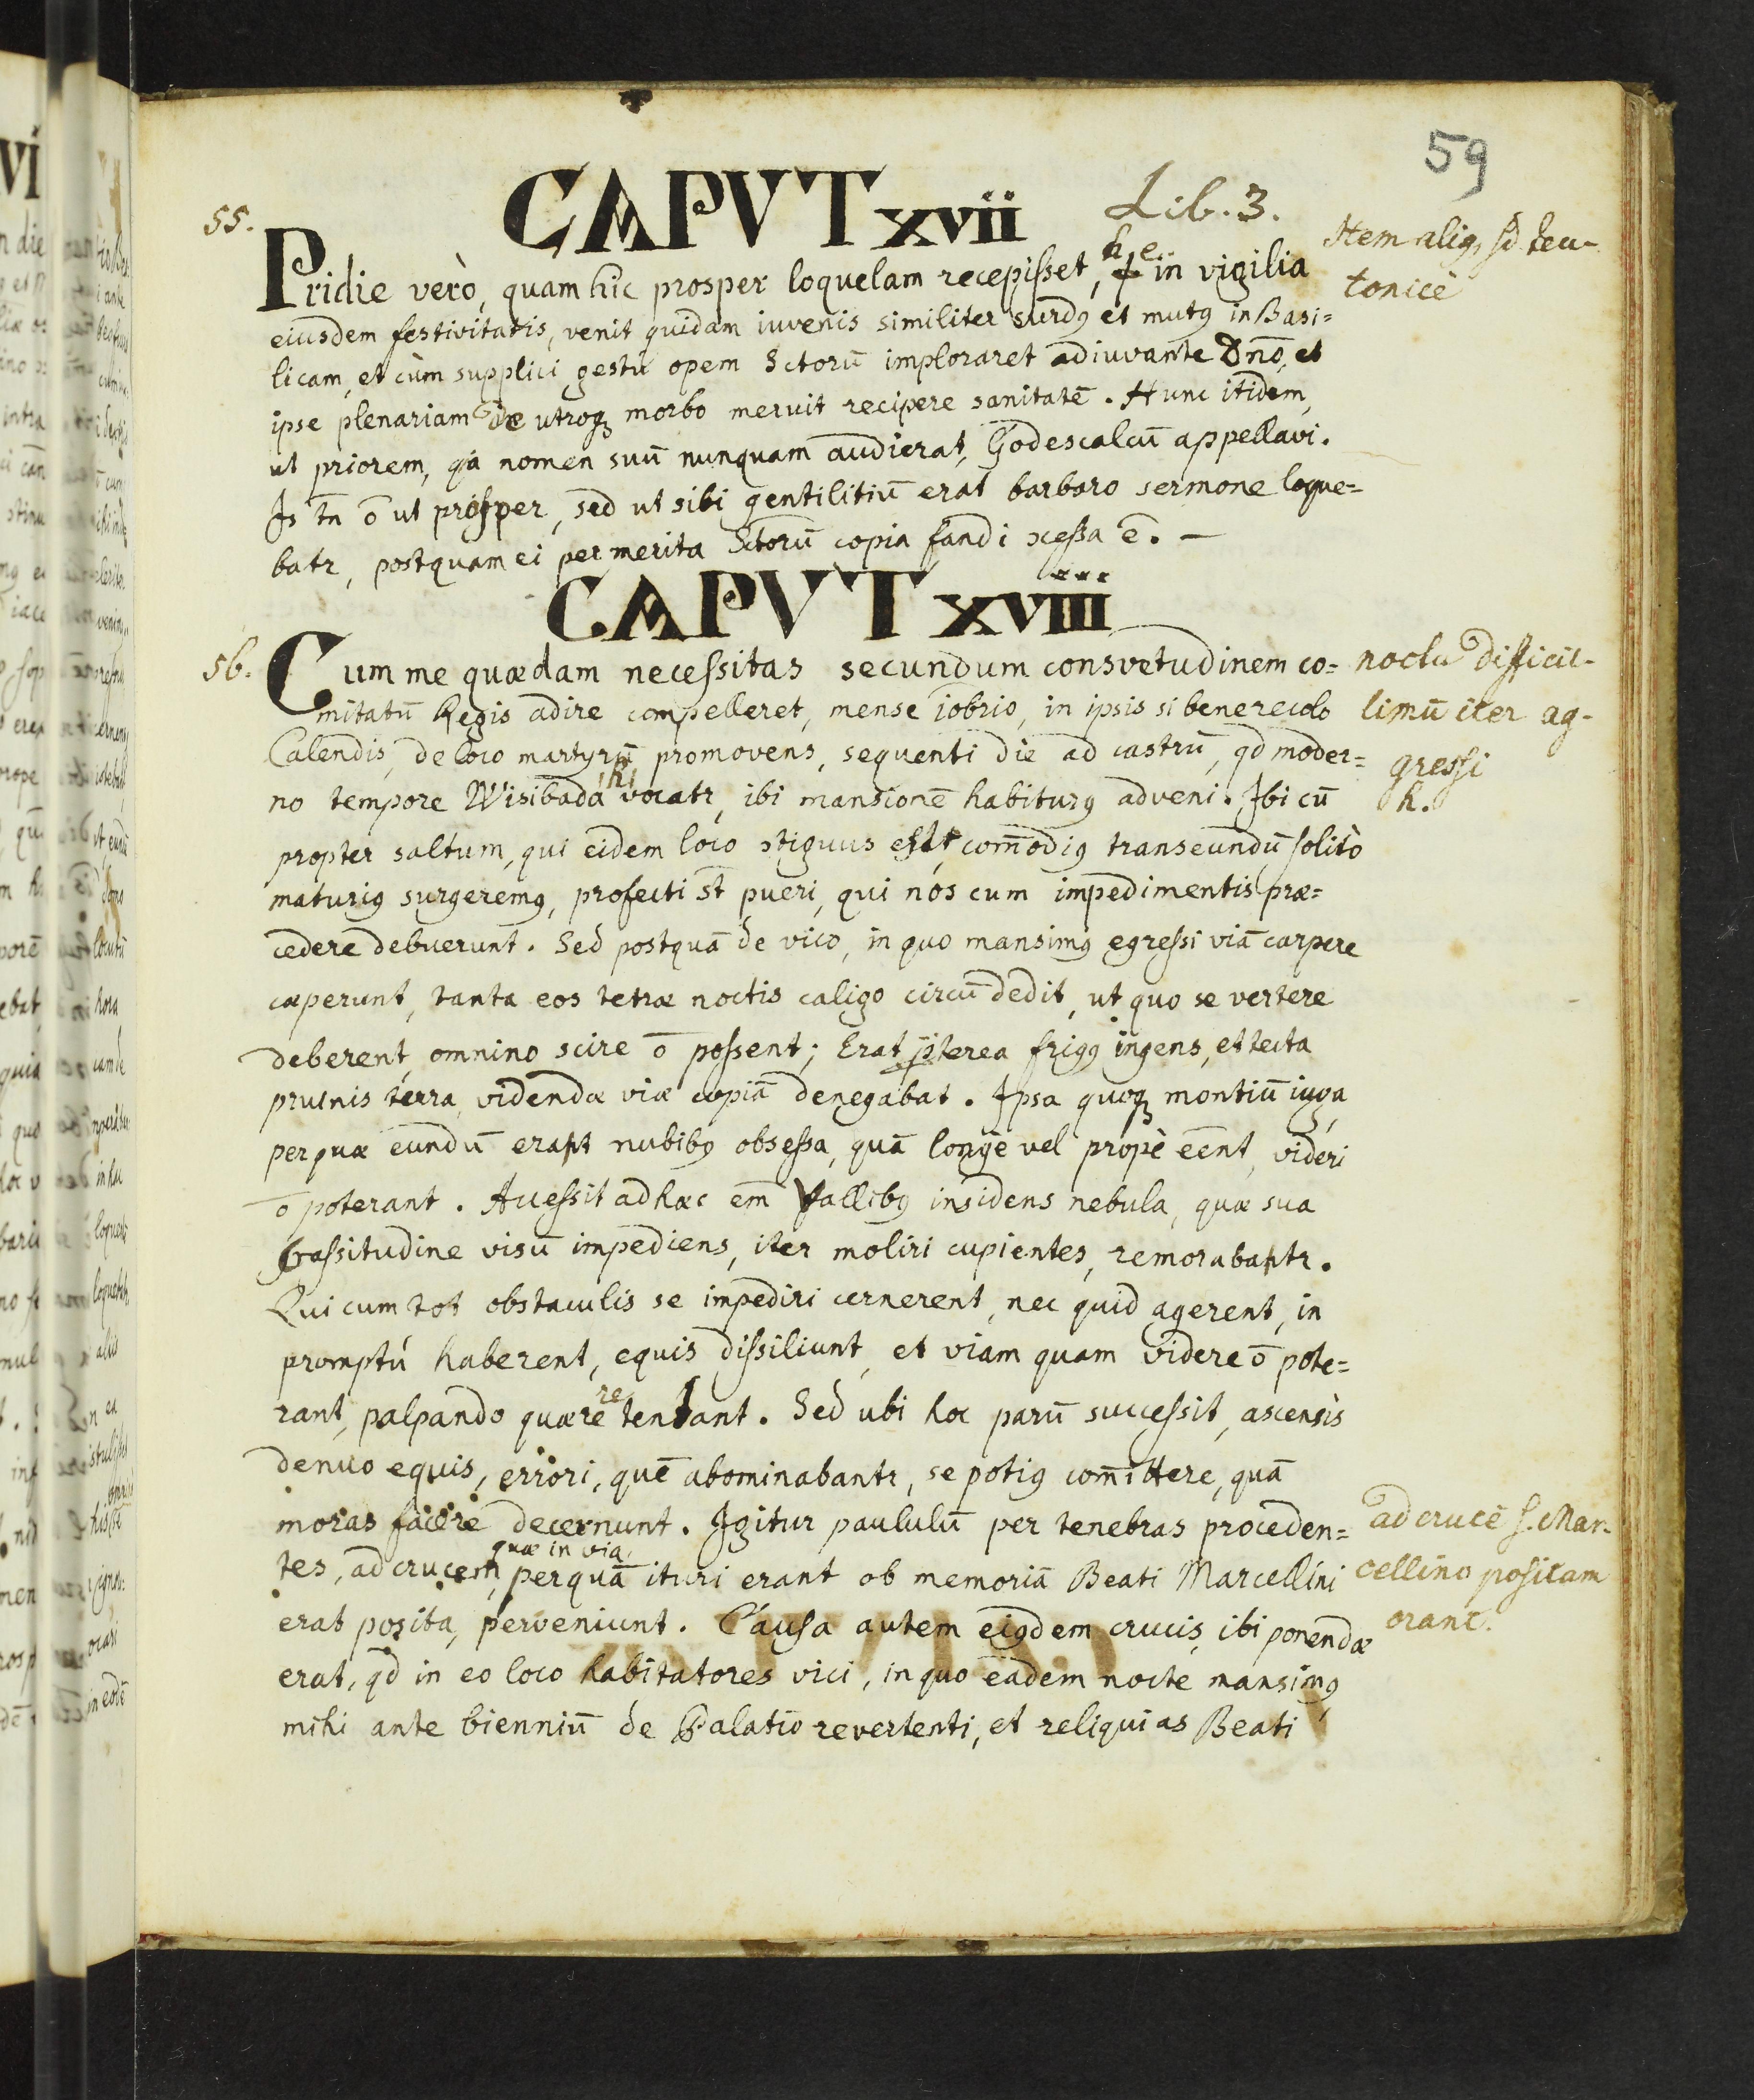 59
CAPVT xvii Lib. 3.
55.
Item aliq, sd teu-
tonicè
Pridie verò, quam hic prosper loquelam recepisset, h.e. in vigilia
eiusdem festivitatis, venit quidam iuvenis similiter surdꝰ et mutꝰ in Basi=
licam, et cùm supplici gestu opem Sctorū imploraret adiuvante Dño, et
ipse plenariam de utroqꝫ morbo meruit recipere sanitatē. Hunc itidem,
ut priorem, qa nomen suū nunquam audierat, Godescalcū appellavi.
Is tn̄ ō ut prosper, sed ut sibi gentilitiū erat barbaro sermone loque=
batr, postquam ei per merita Sctorū copia fandi ↄcessa ē. —
CAPVT xviii
56.
Cum me quædam necessitas secundum consvetudinem co=
mitatū Regis adire compelleret, mense iobrio, in ipsis si bene recolo
Calendis, de loco martyrū promovens, sequenti die ad castrū, qd moder=
no tempore Wisibada h. vocatr, ibi mansionē habiturꝰ adveni. Ibi cū
propter saltum, qui eidem loco ↄtiguus est, com̄odiꝰ transeundū solitò
maturiꝰ surgeremꝰ, profecti st̄ pueri, qui nos cum impedimentis præ=
cedere debuerunt. Sed postquā de vico, in quo mansimꝰ egressi viā carpere
cæperunt, tanta eos tetræ noctis caligo circūdedit, ut quo se vertere
deberent, omnino scire ō possent; Erat p̄terea frigꝰ ingens, et tecta
pruinis terra, videndæ viæ copiā denegabat. Ipsa quoqꝫ montiū iuga
per quæ eundū erat nubibꝰ obsessa, quā longè vel propè eēnt, videri
ō poterant. Accessit ad hæc em̄ vallibꝰ insidens nebula, quæ sua
crassitudine visū impediens, iter moliri cupientes, remorabatr.
Qui cum tot obstaculis se impediri cernerent, nec quid agerent, in
promptú haberent, equis dissiliunt, et viam quam videre ō pote=
rant, palpando quærere tentant. Sed ubi hoc parū successit, ascensis
denuo equis, errori, quē abominabantr, se potiꝰ com̄ittere, quā
moras facere decernunt. Igitur paululū per tenebras proceden=
tes, ad crucem, quæ in via, per quā ituri erant ob memoriā Beati Marcellini
erat posita, perveniunt. Causa autem eiꝰdem crucis ibi ponendæ
erat, qd in eo loco habitatores vici, in quo eadem nocte mansimꝰ
mihi ante bienniū de Palatio revertenti, et reliquias Beati
noctu difficil-
limū iter ag-
gressi
h.
ad crucē S. Mar-
cellino positam
orant.